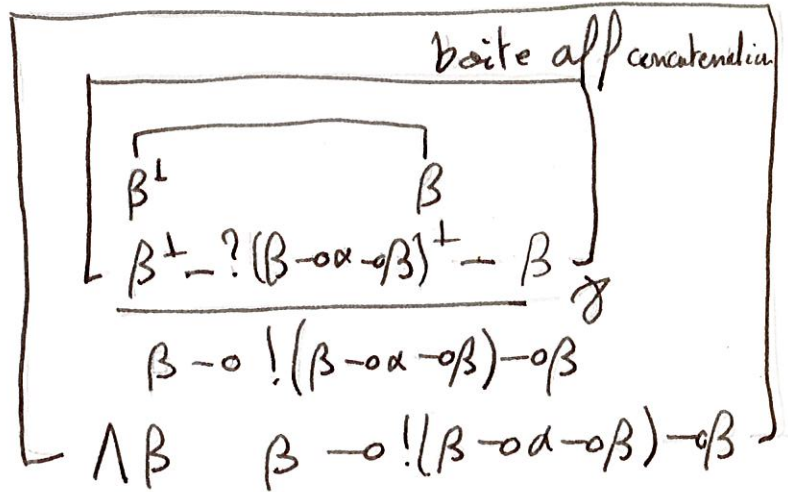 boite aff concatenation
β⊥ β
β⊥ – ?(β⊸α⊸β)⊥ – β
⅋
β ⊸ !(β⊸α⊸β)⊸β
Λβ β ⊸ !(β⊸α⊸β)⊸β